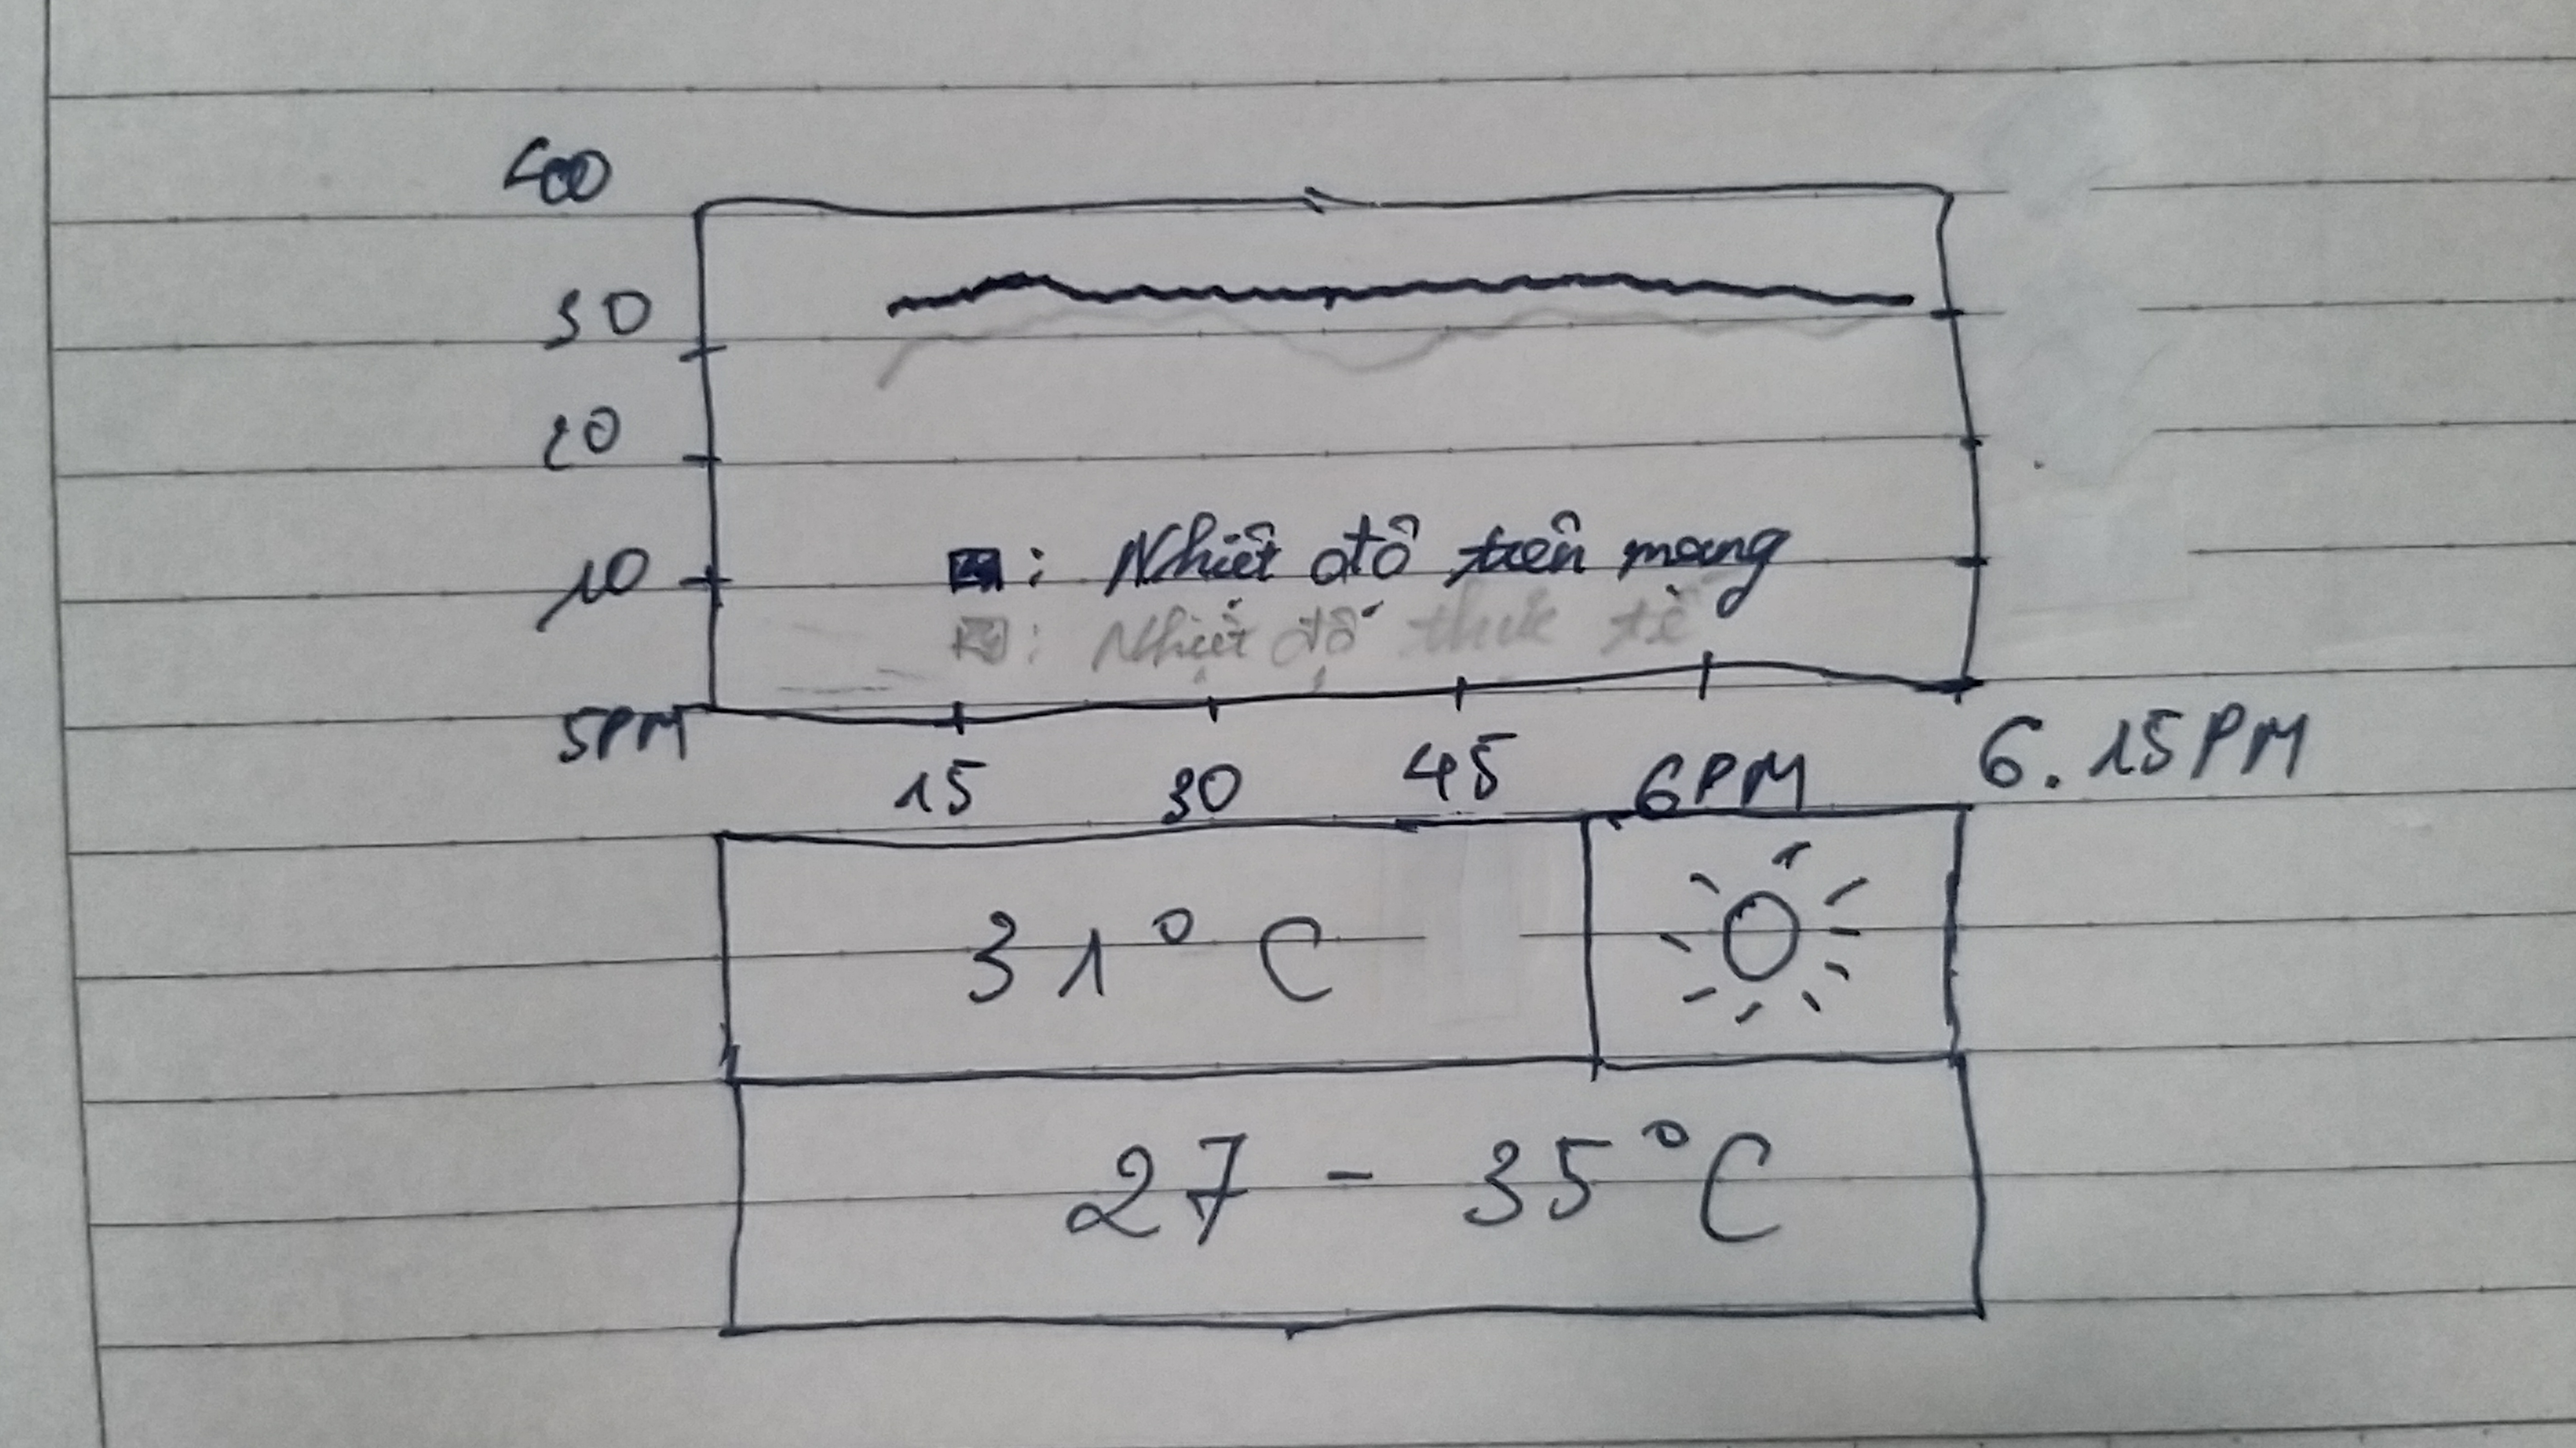 40
30
20
10
: Nhiệt độ trên mạng
: Nhiệt độ thực tế
5PM
15 30 45 6PM 6.15PM
31°C
27 - 35°C